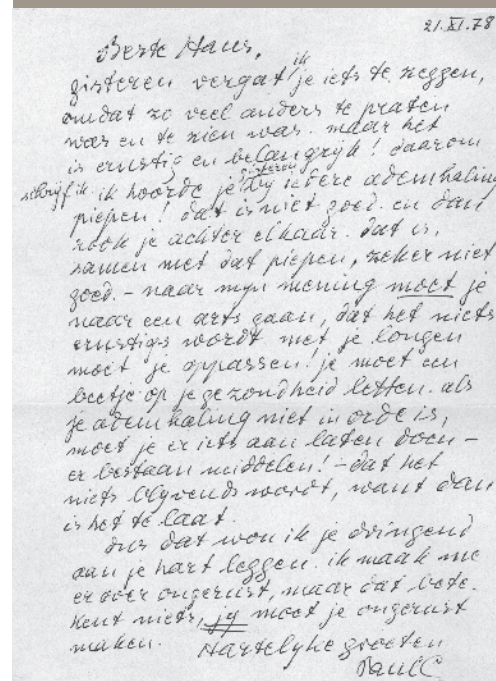 21.XI.78
Beste Hans,
gisteren vergat ik je iets te zeggen,
omdat zo veel anders te praten
was en te zien was. maar het
is ernstig en belangryk! daarom
schryf ik. ik hoorde je gisteren by iedere ademhaling
piepen! dat is niet goed. en dan
rook je achter elkaar. dat is,
samen met dat piepen, zeker niet
goed. – naar myn mening moet je
naar een arts gaan, dat het niets
ernstigs wordt. met je longen
moet je oppassen! je moet een
beetje op je gezondheid letten. als
je ademhaling niet in orde is,
moet je er iets aan laten doen –
er bestaan middelen! – dat het
niets blyvends wordt, want dan
is het te laat.
dus dat wou ik je dringend
aan je hart leggen. ik maak me
er over ongerust, maar dat bete-
kent niets, jy moet je ongerust
maken. Hartelyke groeten
Paul C